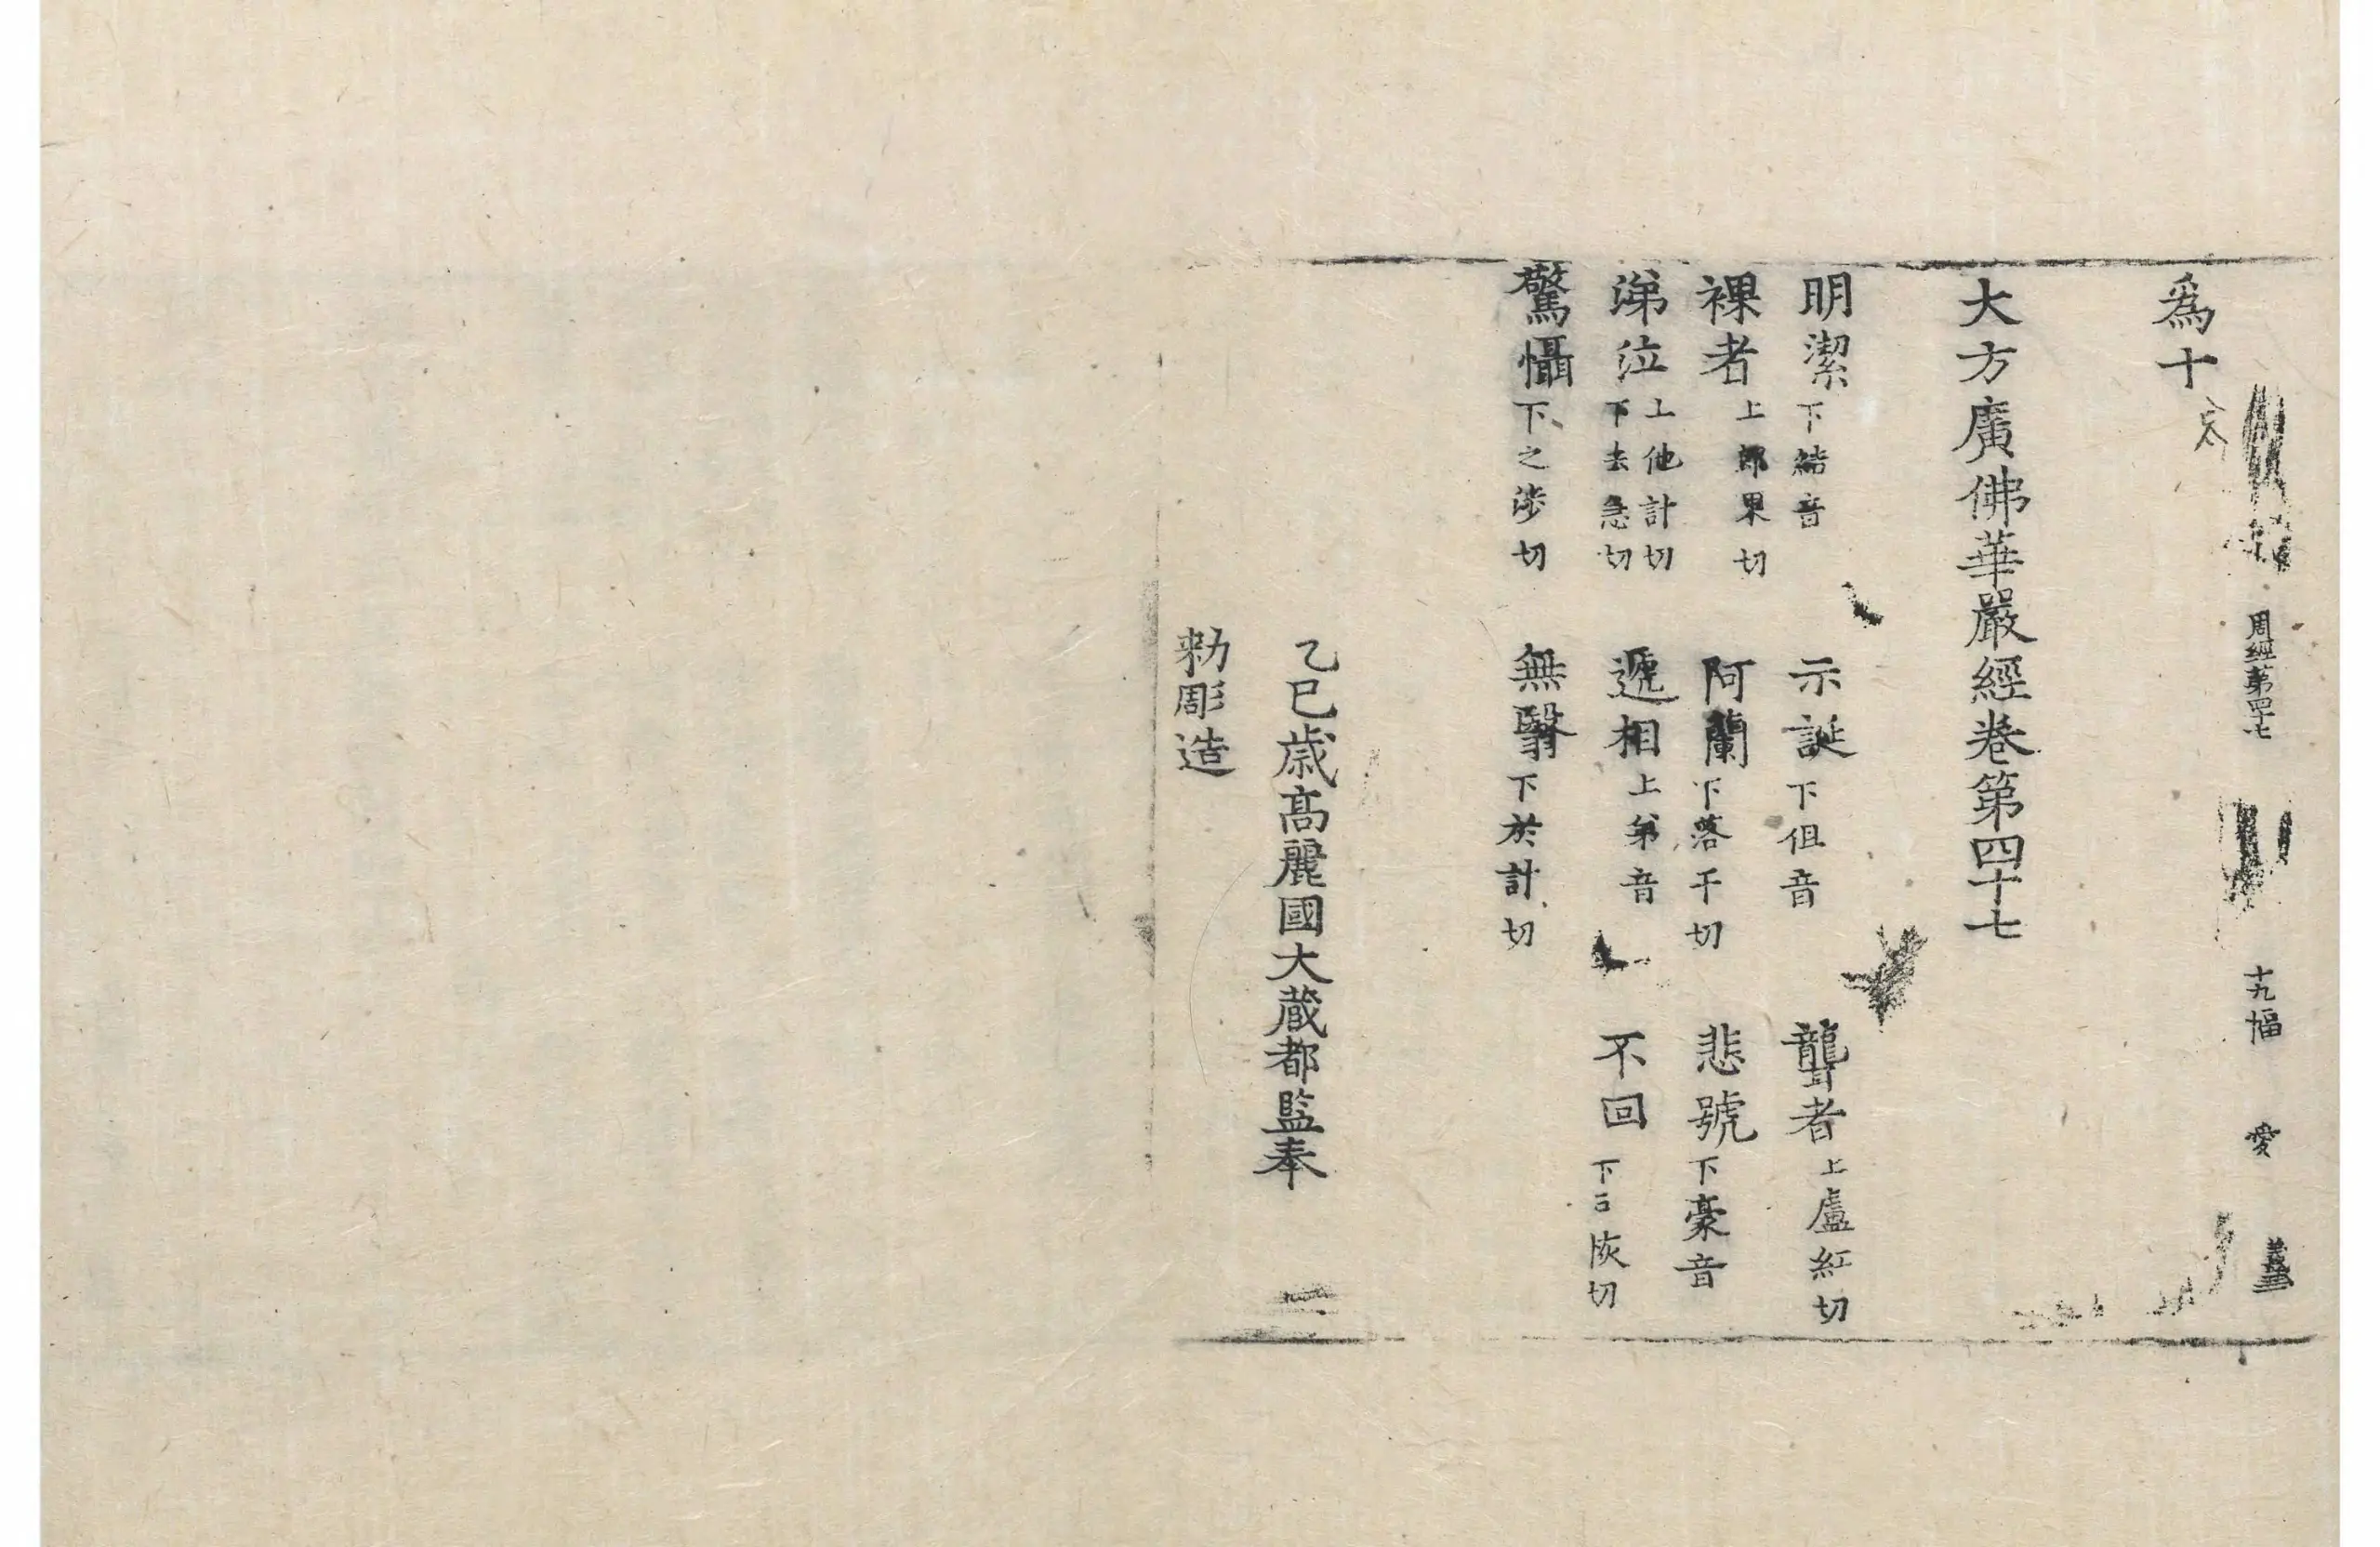 周經第四十七 十九幅 愛
爲十
大方廣佛華嚴經卷第四十七
明潔下結音 示誕下但音 聾者上盧紅切
裸者上郎果切 阿蘭下落干切 悲號下豪音
涕泣上他計切下去急切 遞相上弟音 不回下戸恢切
驚懾下之涉切 無翳下於計切
乙巳歲高麗國大藏都監奉
勑彫造